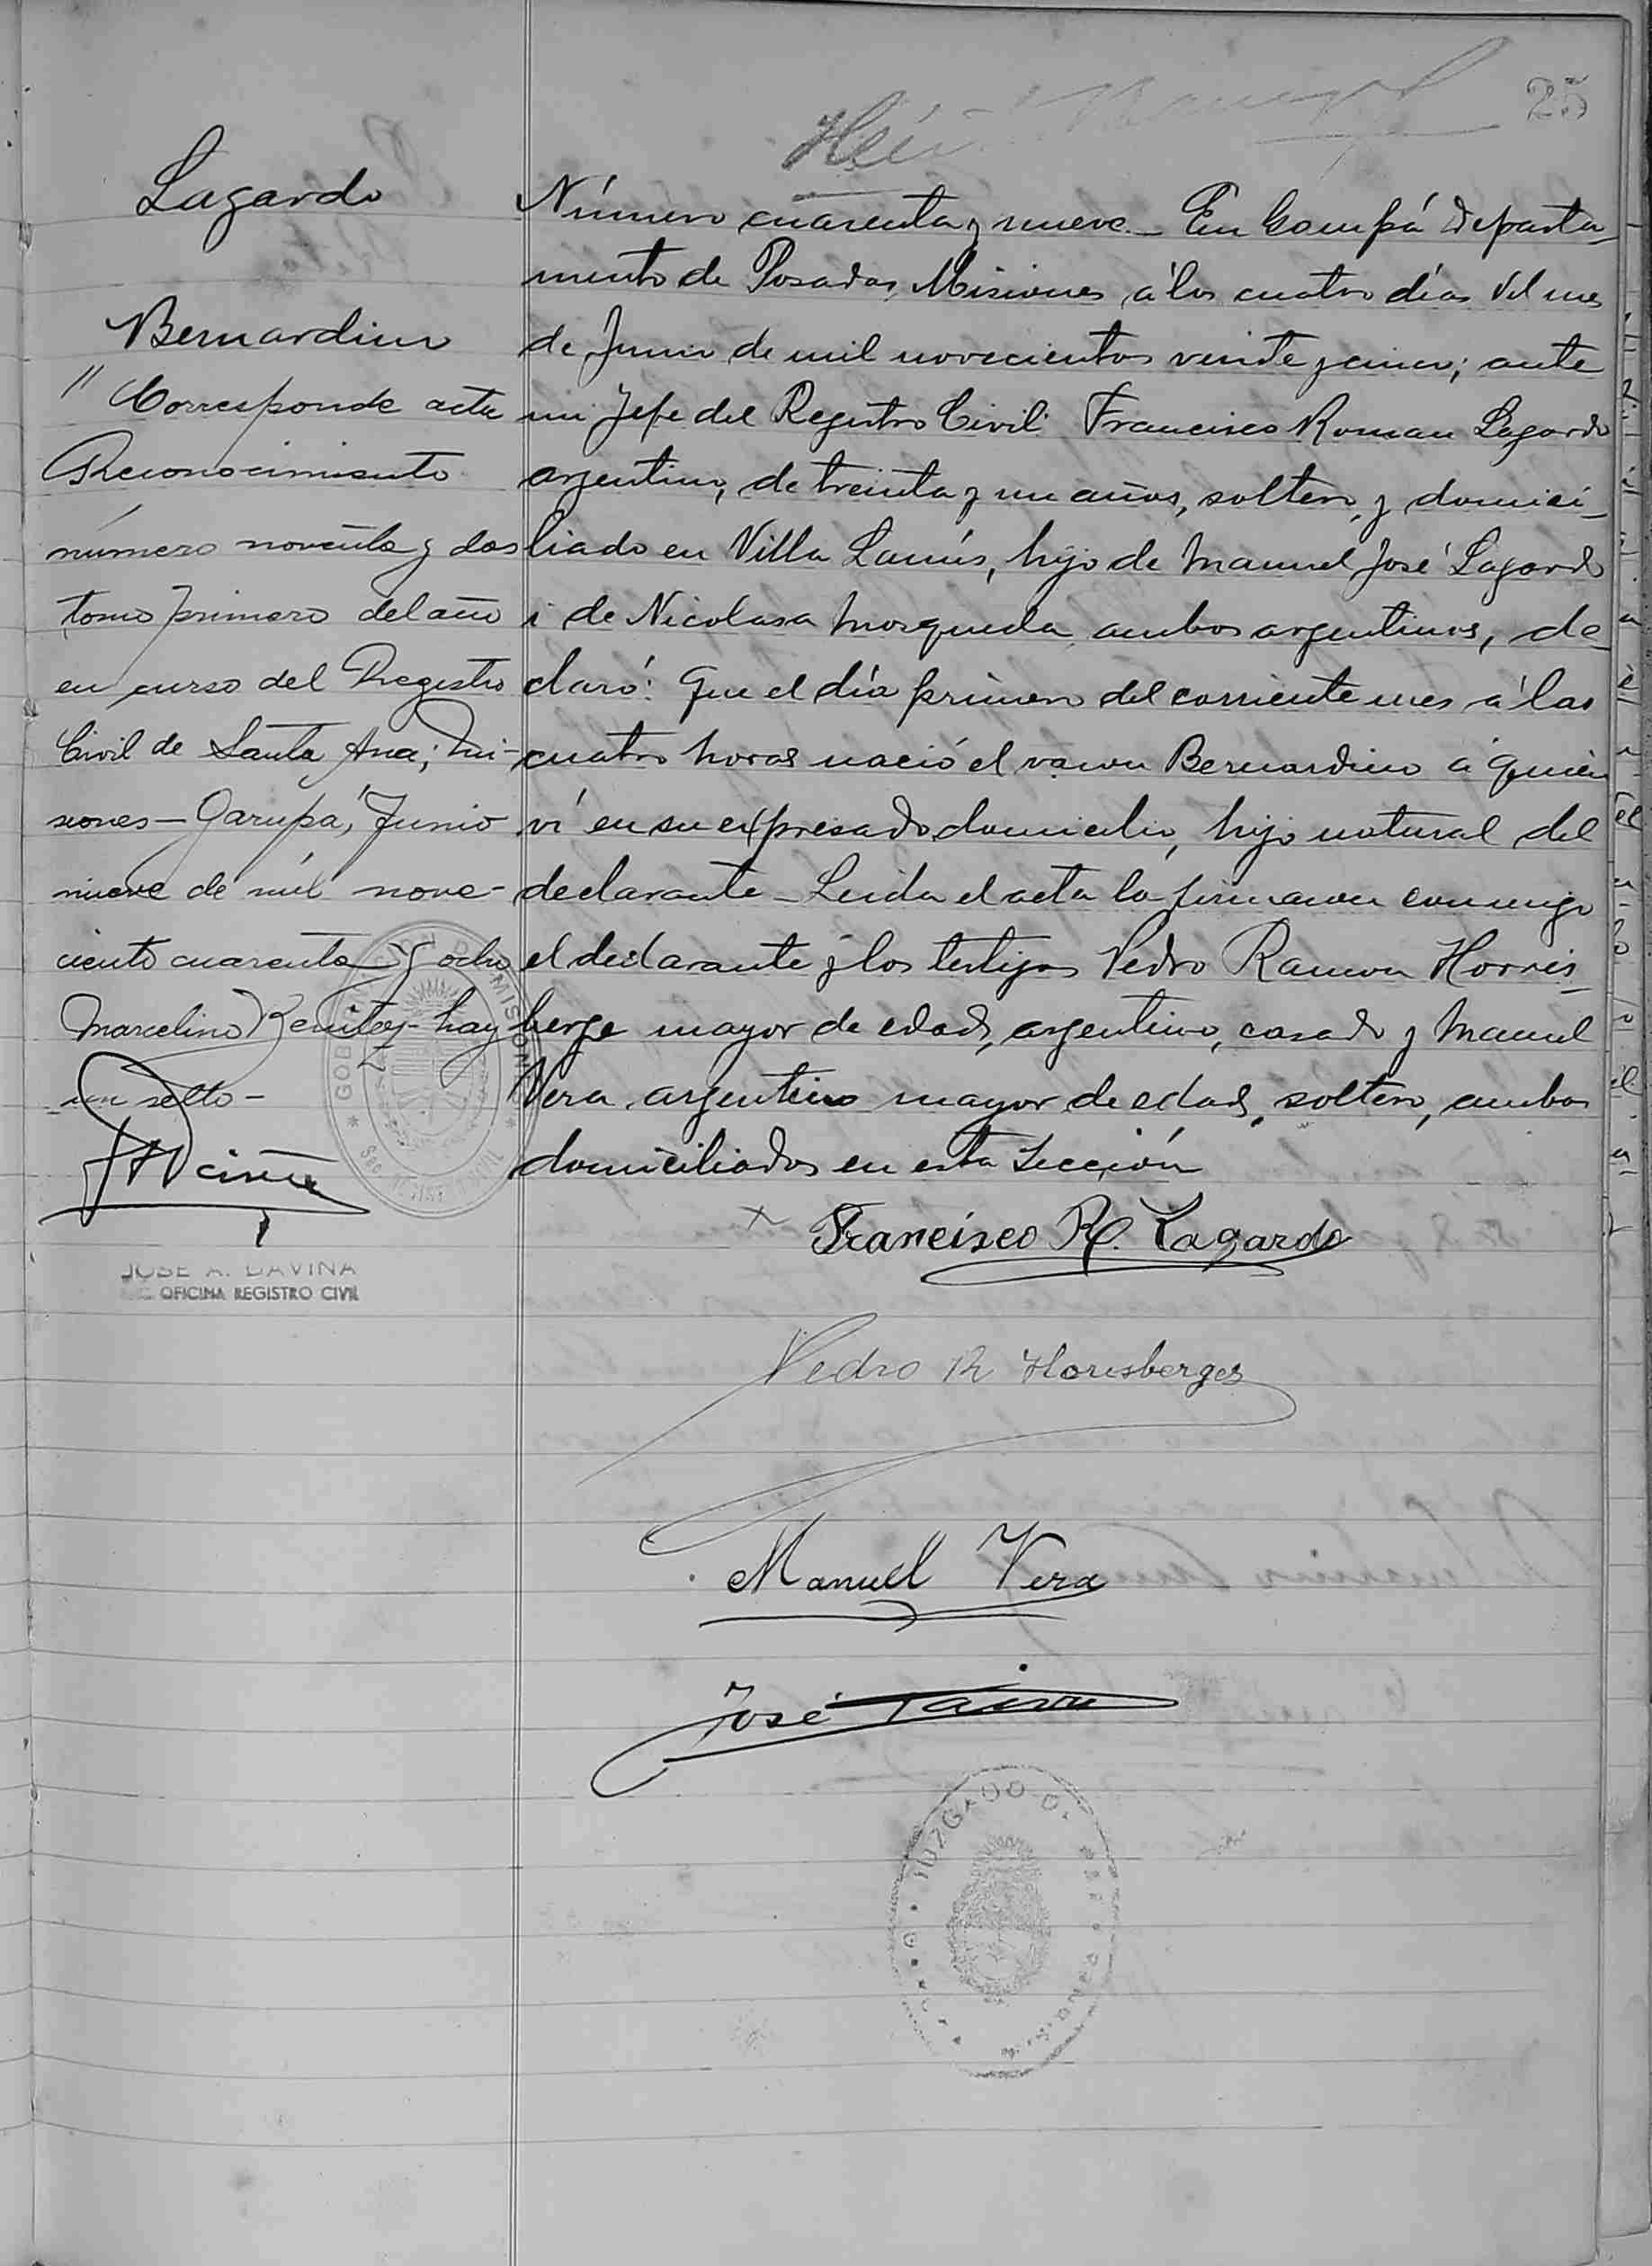 25
Lagardo
Bernardino
" Corresponde acta
Reconocimiento
número noventa y dos
tomo primero del año
en curso del Registro
Civil de Santa Ana; Mi-
siones - Garupá, Junio
nueve de mil nove-
ciento cuarenta y ocho
Marcelino Benitez - hay
un sello -
JOSE A. DAVIÑA
OFICINA REGISTRO CIVIL
Número cuarenta y nueve. - En Garupá departa-
mento de Posadas, Misiones, á los cuatro días del mes
de Junio de mil novecientos veinte y cinco; ante
mi Jefe del Registro Civil Francisco Roman Lagardo
argentino, de treinta y un años, soltero, y domici-
liado en Villa Lanús, hijo de Manuel José Lagardo
i de Nicolasa Mosqueda, ambos argentinos, de-
claró: Que el día primero del corriente mes á las
cuatro horas nació el varon Bernardino á quien
ví en su expresado domicilio, hijo natural del
declarante - Leida el acta la firmaron conmigo
el declarante y los testigos Pedro Ramon Horris-
berge mayor de edad, argentino, casado y Manuel
Vera argentino mayor de edad, soltero, ambos
domiciliados en esta Sección
Francisco R. Lagardo
Pedro R Horisberger
Manuel Vera
José
JUZGADO D